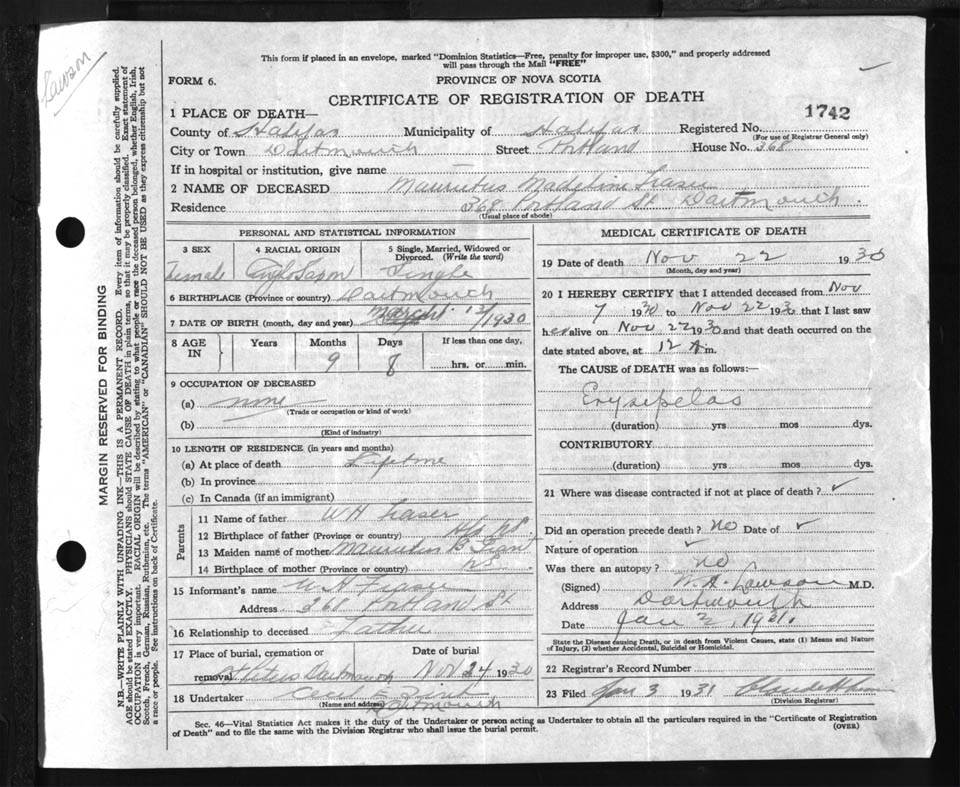 Lawson
This form if placed in an envelope, marked "Dominion Statistics—Free, penalty for improper use, $300," and properly addressed
will pass through the Mail "FREE"
FORM 6.
PROVINCE OF NOVA SCOTIA
CERTIFICATE OF REGISTRATION OF DEATH
1742
1 PLACE OF DEATH—
County of Halifax Municipality of Halifax Registered No.
(For use of Registrar General only)
City or Town Dartmouth Street Portland House No. 368
If in hospital or institution, give name —
2 NAME OF DECEASED Madeline Fraser
Residence 368 Portland St Dartmouth.
(Usual place of abode)
PERSONAL AND STATISTICAL INFORMATION
3 SEX
4 RACIAL ORIGIN
5 Single, Married, Widowed or Divorced. (Write the word)
Female Anglo Saxon Single
6 BIRTHPLACE (Province or country) Dartmouth
7 DATE OF BIRTH (month, day and year) March 1930
8 AGE IN
Years
Months
Days
If less than one day,
9
8
hrs. or min.
9 OCCUPATION OF DECEASED
(a) none
(Trade or occupation or kind of work)
(b)
(Kind of industry)
10 LENGTH OF RESIDENCE (in years and months)
(a) At place of death Lifetime
(b) In province
(c) In Canada (if an immigrant)
Parents
11 Name of father W H Fraser
12 Birthplace of father (Province or country)
13 Maiden name of mother B Grant
14 Birthplace of mother (Province or country) NS
15 Informant's name W H Fraser
Address 368 Portland St
16 Relationship to deceased Father
17 Place of burial, cremation or removal
Date of burial
St Peters Dartmouth Nov 24 1930
18 Undertaker
(Name and address) Dartmouth
MEDICAL CERTIFICATE OF DEATH
19 Date of death Nov 22 1930
(Month, day and year)
20 I HEREBY CERTIFY that I attended deceased from Nov
7 1930 to Nov 22 1930 that I last saw
her alive on Nov 22 1930 and that death occurred on the
date stated above, at 12 A.m.
The CAUSE of DEATH was as follows:—
Erysipelas
(duration) yrs mos dys.
CONTRIBUTORY
(duration) yrs mos dys.
21 Where was disease contracted if not at place of death? ✓
Did an operation precede death? No Date of ✓
Nature of operation ✓
Was there an autopsy? no
(Signed) W. A. Lawson M.D.
Address Dartmouth
Date Jan 2, 1931.
State the Disease causing Death, or in death from Violent Causes, state (1) Means and Nature
of Injury, (2) whether Accidental, Suicidal or Homicidal.
22 Registrar's Record Number
23 Filed Jan 3 1931
(Division Registrar)
Sec. 46—Vital Statistics Act makes it the duty of the Undertaker or person acting as Undertaker to obtain all the particulars required in the "Certificate of Registration
of Death" and to file the same with the Division Registrar who shall issue the burial permit.
(OVER)
MARGIN RESERVED FOR BINDING
N.B.—WRITE PLAINLY WITH UNFADING INK—THIS IS A PERMANENT RECORD. Every item of information should be carefully supplied.
AGE should be stated EXACTLY. PHYSICIANS should STATE CAUSE OF DEATH in plain terms, so that it may be properly classified. Exact statement of
OCCUPATION is very important. RACIAL ORIGIN will be described by stating to what people or race the deceased person belonged, whether English, Irish,
Scotch, French, German, Russian, Ruthenian, etc. The terms "AMERICAN" or "CANADIAN" SHOULD NOT BE USED as they express citizenship but not
a race or people. See instructions on back of Certificate.